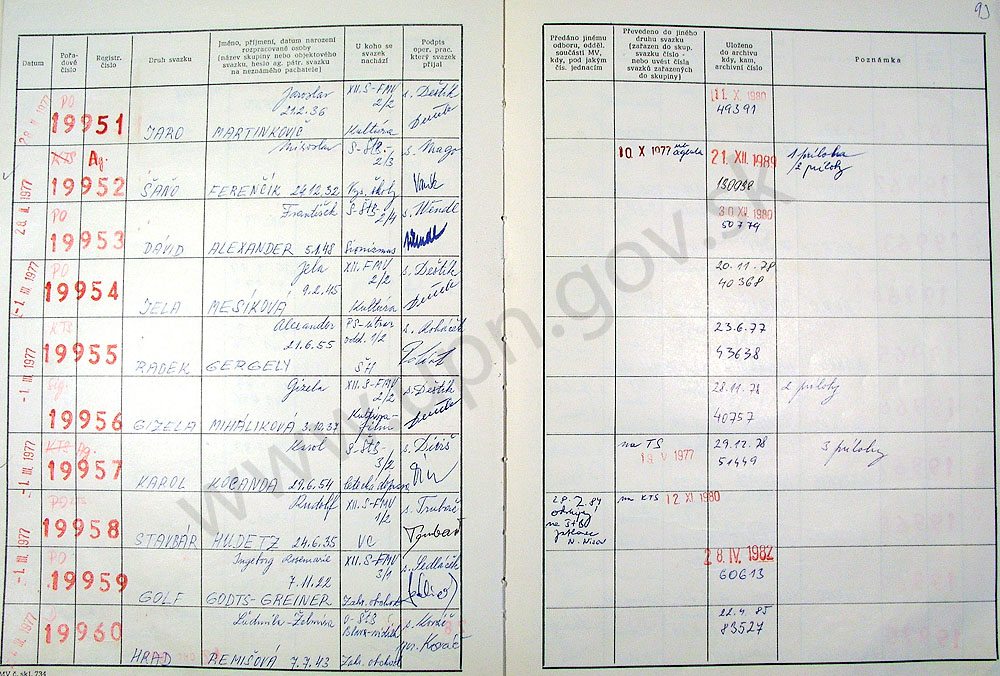 93
Datum
Pořadové číslo
Registr. číslo
Druh svazku
Jméno, příjmení, datum narození rozpracované osoby (název skupiny nebo objektového svazku, heslo ag. pátr. svazku na neznámého pachatele)
U koho se svazek nachází
Podpis oper. prac. který svazek přijal
Předáno jinému odboru, odděl. součásti MV, kdy, pod jakým čís. jednacím
Převedeno do jiného druhu svazku (zařazen do skup. svazku číslo - nebo uvést čísla svazků zařazených do skupiny)
Uloženo do archivu kdy, kam, archivní číslo
Poznámka
PO
19951
JARO
Jaroslav
21.2.36
MARTINKOVIČ
XII. S-FMV
2/2
Kultúra
s. Deštík
11. X. 1980
49391
KTS Ag.
19952
ŠAŇO
Miroslav
FERENČÍK 24.12.32
S-ŠtB-
2/3
Vys. školy
s. Mago
10. X 1977
agenta
21. XII. 1989
1 príloha
2 prílohy
PO
19953
DÁVID
František
ALEXANDER 5.1.48
S-ŠtB
2/4
Sionizmus
s. Wendl
30 XI. 1980
50779
PO
19954
JELA
Jela
9.2.45
MESÍKOVÁ
XII. FMV
2/2
Kultúra
s. Deštík
20.11.78
40368
KTS
19955
RADEK
Alexander
21.6.55
GERGELY
PS-útvar
odd. 1/2
ŠH
23.6.77
43638
19956
GIZELA
Gizela
MIHÁLIKOVÁ 3.10.37
XII. S-FMV
2/2
Kultúra-
film
s. Deštík
28.11.78
40757
2 prílohy
KTS Ag.
19957
KAROL
Karol
KUCANDA 29.6.54
S-ŠtB
3/2
letecká doprava
s. Diviš
na TS
1977
29.12.78
51449
3 prílohy
PO
19958
STAVBÁR
Rudolf
HUDETZ 24.6.35
XII. S-FMV
1/2
VC
s. Trubač
na KTS 12 XI 1980
PO
19959
GOLF
Ingeborg Rosemarie
7.11.22
GODTS-GREINER
XII. S-FMV
3/1
Zahr. obchod
s. Sedláček
28. IV. 1982
60613
19960
HRAD
Ľudmila-Želmíra
REMIŠOVÁ 7.7.43
Zahr. obchod
s. Kováč
Kováč
22.4.85
83527
MV č. skl. 734
www.upn.gov.sk